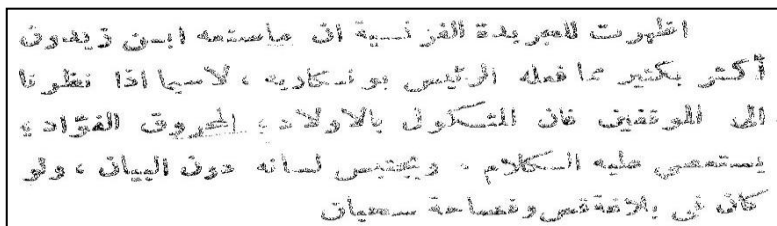 اظهرت للجريدة الفرنسية ان ماصنعه ابن زيدون
أكثر بكثير مما فعله الرئيس بونكاريه ، لاسيما اذا نظرنا
الى الموقفين فان المثكول بالاولاد ، المحروق الفؤاد ،
يستعصي عليه الكلام . ويحتبس لسانه دون البيان ، ولو
كان في بلاغة قس وفصاحة سحبان